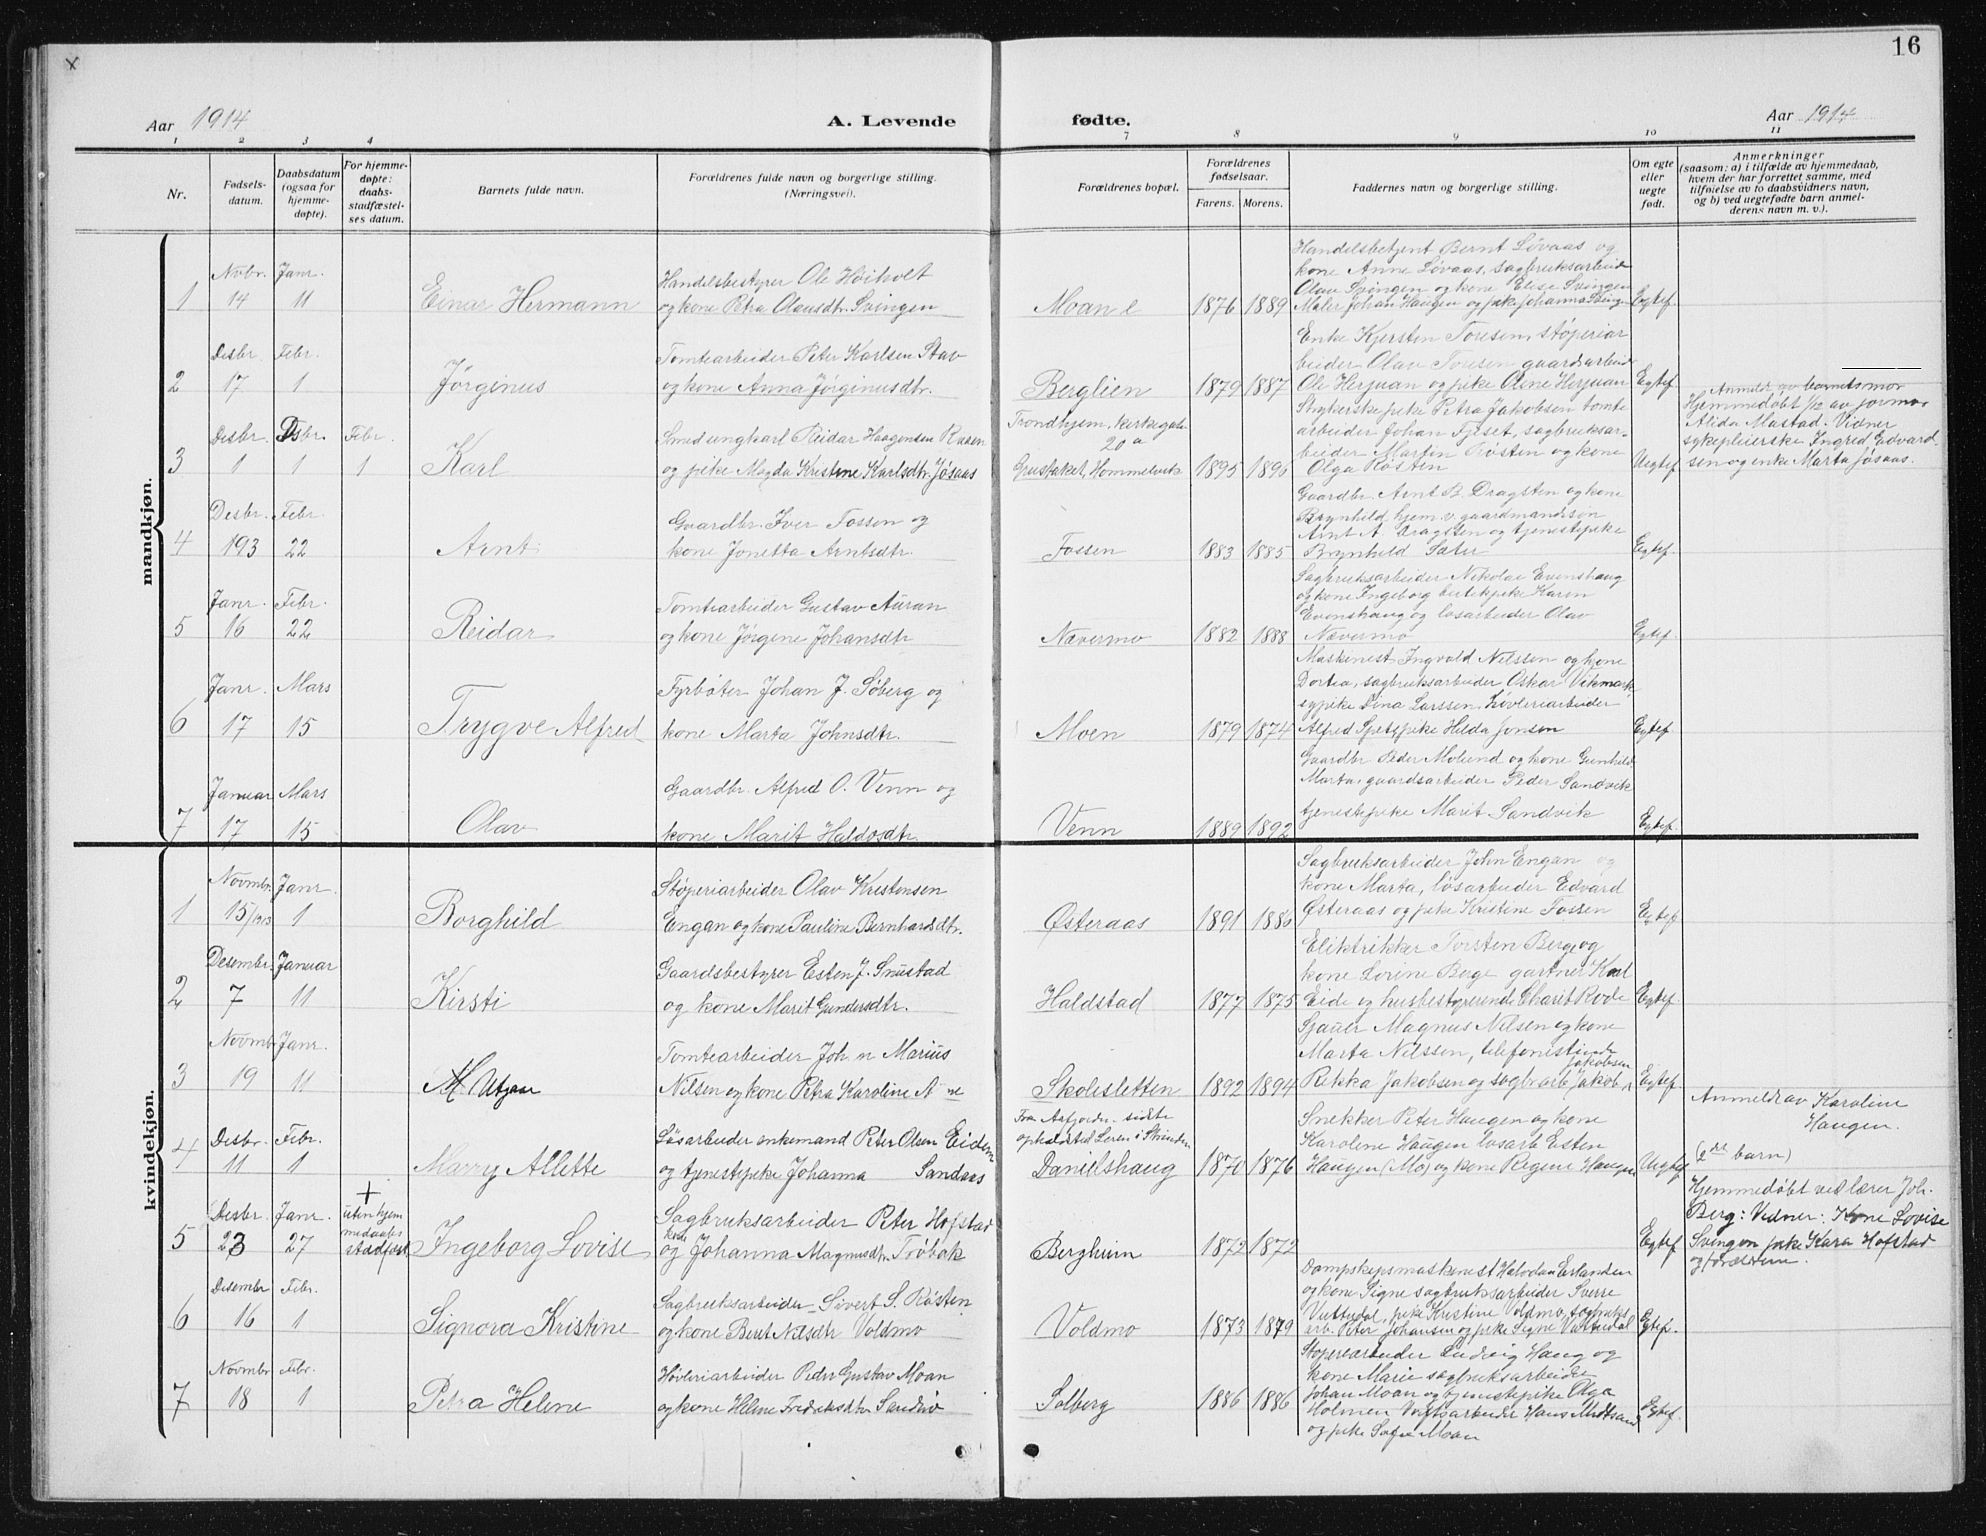 16
Aar 1914
A. Levende fødte.
Aar 1914
1 2 3 4 7 8 9 10 11
Nr.
Fødsels-
datum.
Daabsdatum
(ogsaa for
hjemme-
døpte).
For hjemme-
døpte:
daabs-
stadfæstel-
ses datum.
Barnets fulde navn.
Forældrenes fulde navn og borgerlige stilling.
(Næringsvei).
Forældrenes bopæl.
Forældrenes
fødselsaar.
Farens. Morens.
Faddernes navn og borgerlige stilling.
Om egte
eller
uegte
født.
Anmerkninger
(saasom: a) i tilfælde av hjemmedaab,
hvem der har forrettet samme, med
tilføielse av to daabsvidners navn,
og b) ved uegtefødte barn anmel-
derens navn m. v.).
mandkjøn.
1
Novbr. Janr.
14 11
Einar Hermann
Handelsbestyrer Ole Høiholt
og kone Petra Olausdtr. Svingen
Moan e
1876 1889
Handelsbetjent Bernt Løvaas og
kone Anne Løvaas, sagbruksarbeider
Olav Svingen og kone Elise Svingen
Maler Johan Haugen og pike Johanna Svingen
Egtef.
2
Desbr. Febr.
17 1
Jørginus
Tomtearbeider Peter Karlsen Stav
og kone Anna Jørginusdtr.
Berglien
1879 1887
Enke Kjersten Toresen, støperiar
beider Olav Toresen gaardsarbeider
Ole Herjuan og pike Oline Herjuan
Egtef.
3
Desbr. Dsbr. Febr.
1 1 1
Karl
Smed ungkarl Reidar Haagensen Raaen
og pike Magda Kristine Karlsdtr. Jøsaas
Trondhjem, kirkegate
20a
Grustaket, Hommelvik
1895 1896
Strykerske pike Petra Jakobsen tomte
arbeider Johan Fjeset, sagbruksar-
beider Martin Røsten og kone
Olga Røsten
Uegtef
Anmeldt av barnets mor
Hjemmedøbt 1/12 av jormor
Alida Mastad. Vidner
sykepleierske Ingrid Edvard-
sen og enke Marta Jøsaas.
4
Desbr. Febr.
193 22
Arnt
Gaardbr. Iver Fossen og
kone Jonetta Arntsdtr.
Fossen
1883 1885
Gaardbr. Arnt B. Dragsten og kone
Brynhild hjem. v. gaardmandsøn
Arnt A. Dragsten og tjenestepike
Brynhild Sæter
Egtef.
5
Janr. Febr.
16 22
Reidar
Tomtearbeider Gustav Auran
og kone Jørgine Johansdtr
Nævermo
1882 1888
Sagbruksarbeider Nikolai Evenshaug
og kone Ingeborg butikpike Karen
Evenshaug og løsarbeider Olav
Nævermo
Egtef.
6
Janr. Mars
17 15
Trygve Alfred
Fyrbøter Johan J. Søberg og
kone Marta Johnsdtr.
Moen
1879 1874
Maskinist Ingvald Nilssen og kone
Dortea, sagbruksarbeider Oskar Vikmark
sypike Dina Larssen, høvleriarbeider
Alfred pike Hilda Jonsen
Egtef
7
Januar Mars
17 15
Olav
Gaardbr. Alfred O. Venn og
kone Marit Haldosdtr.
Venn
1889 1892
Gaardbr Peder Molund og kone Gunhild
Marta, gaardsarbeider Peder Sandvik
tjenestepike Marit Sandvik
Egtef.
kvindekjøn.
1
Novmbr. Janr.
15/1913 1
Borghild
Støperiarbeider Olav Kristensen
Engan og kone Pauline Bernhardsdtr.
Østeraas
1891 1886
Sagbruksarbeider John Engan og
kone Marta, løsarbeider Edvard
Østeraas og pike Kristine Fossen
Egtef.
2
Desembr. Januar
7 11
Kirsti
Gaardsbestyrer Esten J. Snustad
og kone Marit Gundersdtr.
Haldstad
1877 1875
Eliktrikker Torsten Berge og
kone Lorine Berge gartner Karl
Eide og husbestyrerinde Charit Rode
Egtef.
3
Novmbr Janr.
19 11
M. Utgaar
Tomtearbeider Joh n Marius
Nilsen og kone Petra Karoline A ne
Skolesletten
1892 1894
Sjauer Magnus Nilsen og kone
Marta Nilssen, telefonistinde
Rikka Jakobsen og sagbr.arb. Jakob Jakobsen
Egtef.
4
Desbr. Febr.
11 1
Marry Allette
Løsarbeider enkemand Peter Olsen Eidem
og tjenestepike Johanna Sandaas
Fra Aafjorden sidste
opholdsted Leren i Strinden
Danielshaug
1870 1876
Snekker Peter Haugen og kone
Karoline Haugen løsarb Esten
Haugen (Mo) og kone Regine Haugen
Uegtef
Anmeldt av Karoline
Haugen.
(2det barn)
5
Desbr. Janr.
23 27
+
uten hjem
medaabs
stadfæst
Ingeborg Lovise
Sagbruksarbeider Peter Hofstad
og kone Johanna Magnusdtr. Trøbak
Bergheim
1872 1872
Egtef
Hjemmedøbt ved lærer Joh.
Berg: Vidner: Kone Lovise
Svingen pike Kara Hofstad
og forældrene.
6
Desembr Febr.
16 1
Signora Kristine
Sagbruksarbeider Sivert S. Røsten
og kone Beret Nilsdtr Voldmo
Voldmo
1873 1879
Dampskipsmaskinist Halvdan Erlanden
og kone Signe sagbruksarbeider Sverre
Vuttudal, pike Kristine Voldmo, sagbruks
arb. Peter Johansen og pike Signe Vuttudal
Egtef.
7
Novmbr Febr.
18 1
Petra Helene
Høvleriarbeider Peder Gustav Moan
og kone Helene Fredriksdtr Sandviø
Solberg
1886 1886
Støperiarbeider Ludvig Haug og
kone Marie sagbruksarbeider
Johan Moan og tjenestepike Olga
Holmen Hans Midtsand
og pike Sofie Moan
Egtef.